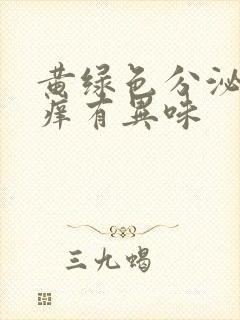 黄绿色分泌
痒有异味
三九蝎